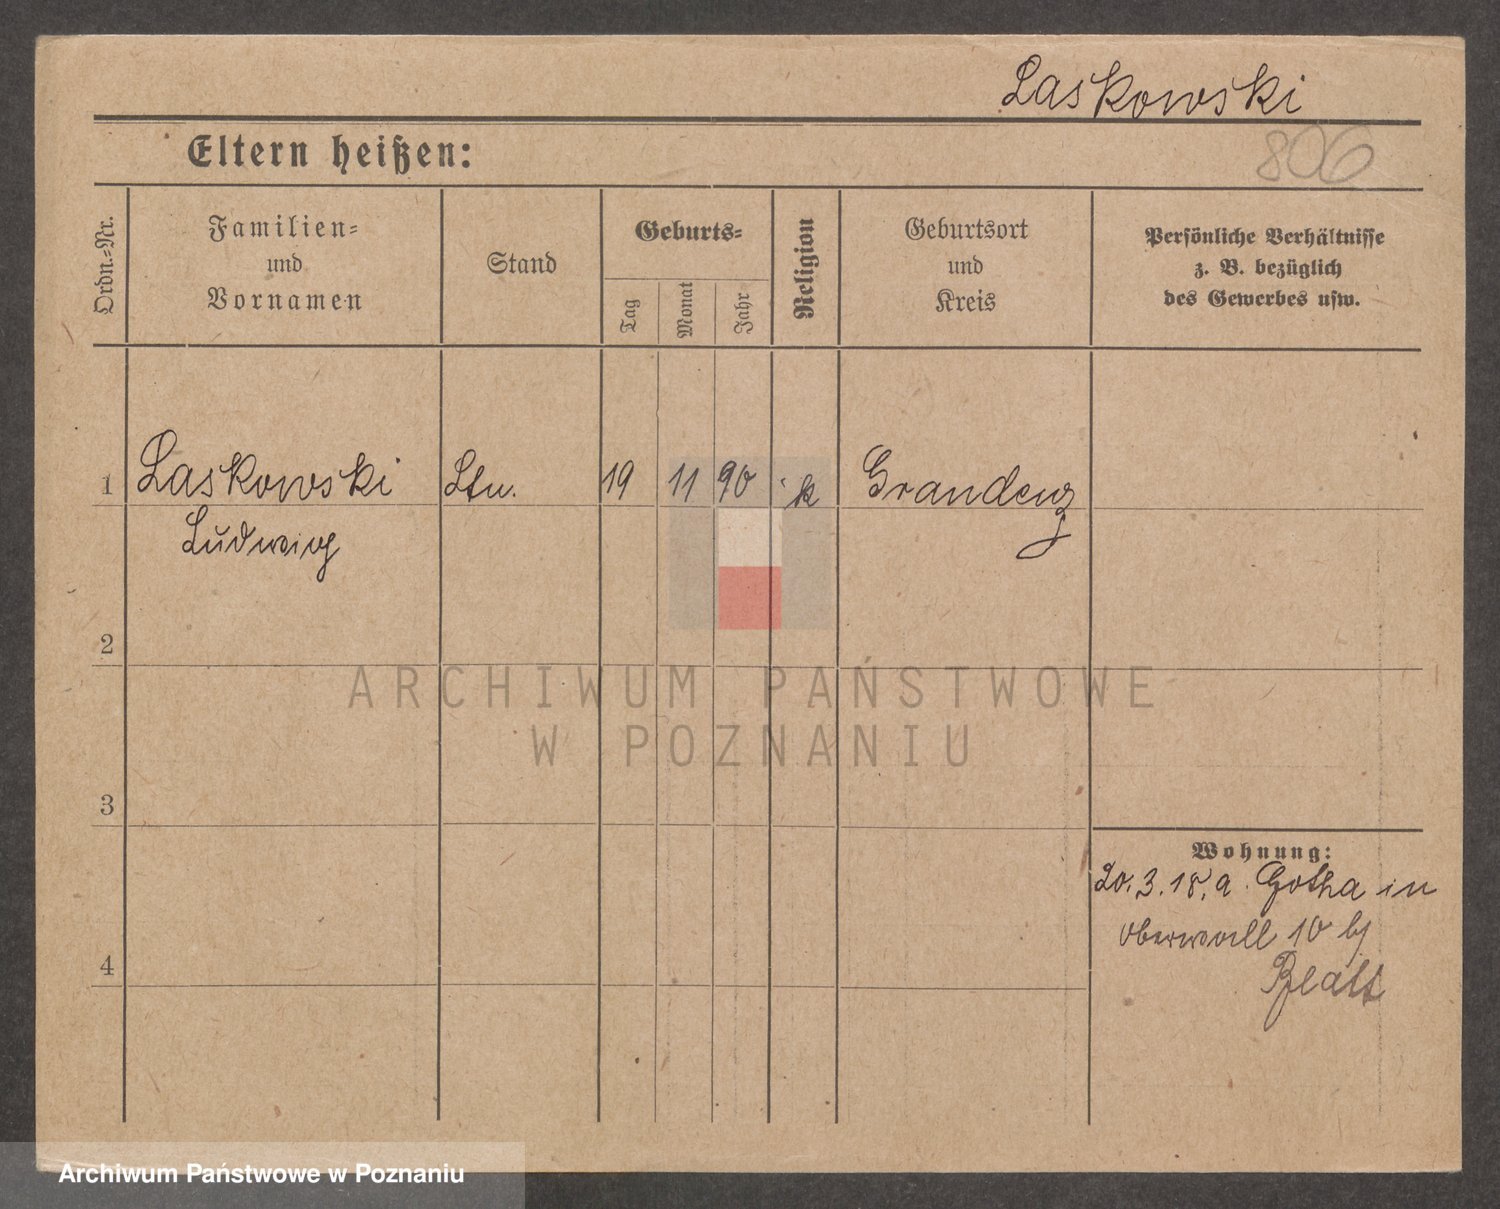 Laskowski
806
Eltern heißen:
Ordn.-Nr.
Familien-
und
Vornamen
Stand
Geburts-
Tag
Monat
Jahr
Religion
Geburtsort
und
Kreis
Persönliche Verhältnisse
z. B. bezüglich
des Gewerbes usw.
1 Laskowski Ltn. 19 11 90 k Graudenz
Ludwig
2
ARCHIWUM PAŃSTWOWE
W POZNANIU
3
Wohnung:
20.3.18, a. Gotha in
Oberwall 10 bj
4
Blatt
Archiwum Państwowe w Poznaniu